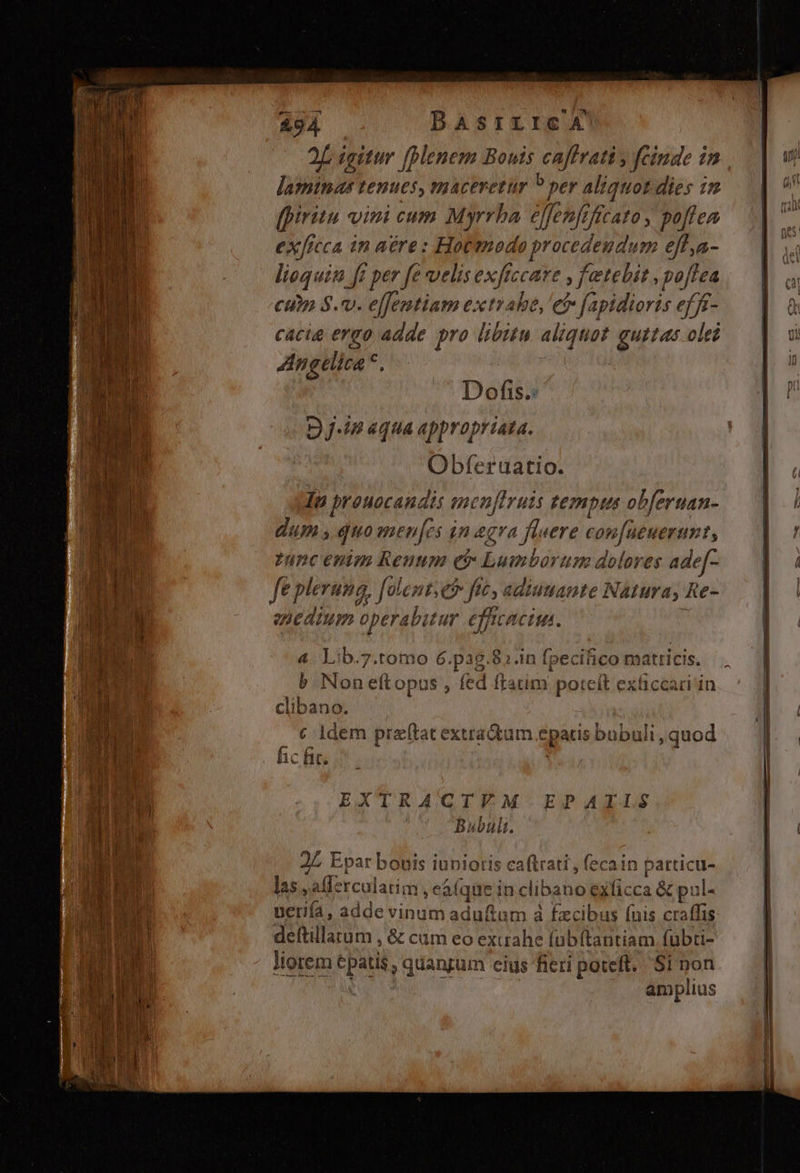 494 BASILICA
♃ igitur ſplenem Bouis caſtrati, ſcinde in
laminas tenues, maceretur ᵇ per aliquot dies in
ſpiritu vini cum Myrrha eſſenſificato, poſtea
exſicca in aëre: Hocmodo procedendum eſt, a-
lioquin ſi per ſe velis exſiccare, fœtebit, poſtea
cum S.v. eſſentiam extrahe, & ſapidioris effi-
caciæ ergo adde pro libitu aliquot guttas olei
Angelicæ ᶜ.
Doſis.
℈j. in aqua appropriata.
Obſeruatio.
In prouocandis menſtruis tempus obſeruan-
dum, quo menſes in ægra fluere conſueuerunt,
tunc enim Renum & Lumborum dolores adeſ-
ſe plerunq, ſolent, & ſic, adiuuante Natura, Re-
medium operabitur efficacius.
a Lib.7.tomo 6.pag.82.in ſpecifico matricis.
b Non eſt opus, ſed ſtatim poteſt exſiccari in
clibano.
c Idem præſtat extractum epatis bubuli, quod
ſic fit.
EXTRACTVM EPATIS
Bubuli.
♃ Epar bouis iunioris caſtrati, ſeca in particu-
las, aſſerculatim, eáſque in clibano exſicca & pul-
ueriſa, adde vinum aduſtum à fæcibus ſuis craſſis
deſtillatum, & cum eo extrahe ſubſtantiam ſubti-
liorem epatis, quantum eius fieri poteſt. Si non
amplius